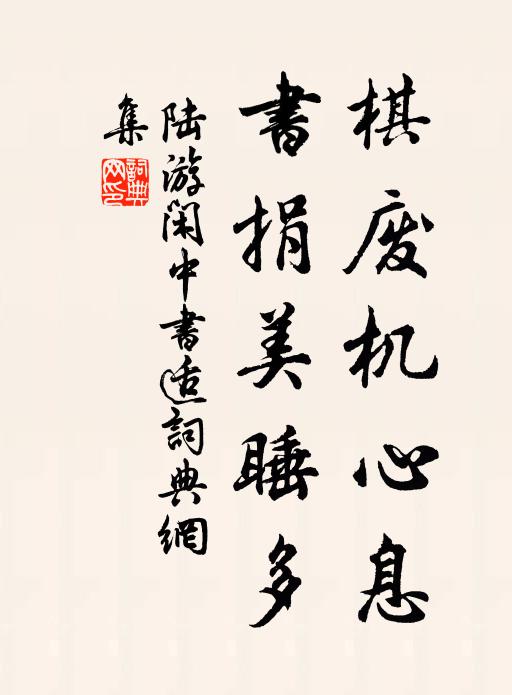 棋废机心息
書捐美睡多
陆游閑中書适詞典網
集
詞典網印